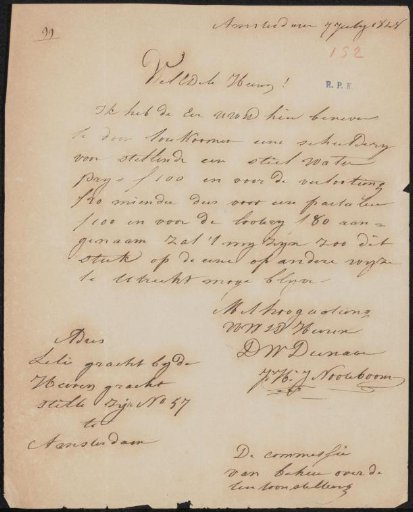 91
Amsterdam 7 July 1848
152
R.P.K.
WelEdele Heeren!
Ik heb de Eer UWEd hier beneve
te doen toekoomen eene schildery
voorstellende een stiel water
prys f 100 en voor de verlooting
f 80 minder dus voor een particulier
f 100 en voor de looting f 80 aan-
genaam zal 't my zyn zoo dit
stuk op de eene op andere wyze
te Utrecht moge blyven
Met hoogachting
UWE Heeren
DW Dienaar
J. H. J Nooteboom
Adres
Lelie gracht by de
Heeren gracht
stille zyde No 57
te
Amsterdam
De commissie
van beheer over de
tentoonstelling